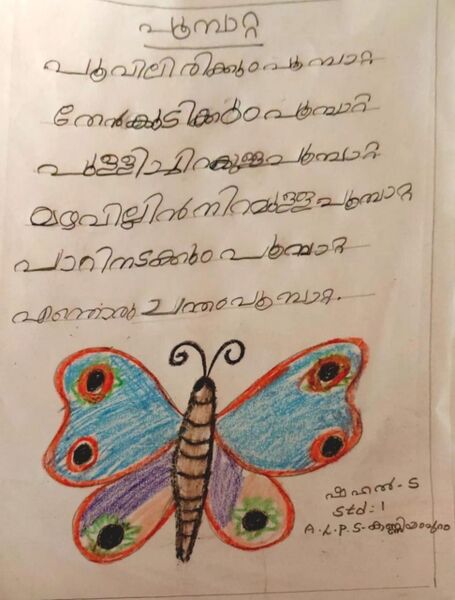 പൂമ്പാറ്റ
പൂവിലിരിക്കും പൂമ്പാറ്റ
തേൻകുടിക്കും പൂമ്പാറ്റ
പുള്ളിച്ചിറകുള്ള പൂമ്പാറ്റ
മഴവില്ലിൻ നിറമുള്ള പൂമ്പാറ്റ
പാറിനടക്കും പൂമ്പാറ്റ
എന്തൊരു ചന്തം പൂമ്പാറ്റ.
ഷഹൽ - S
Std : 1
A.L.P.S. കണ്ണിയംപുറം